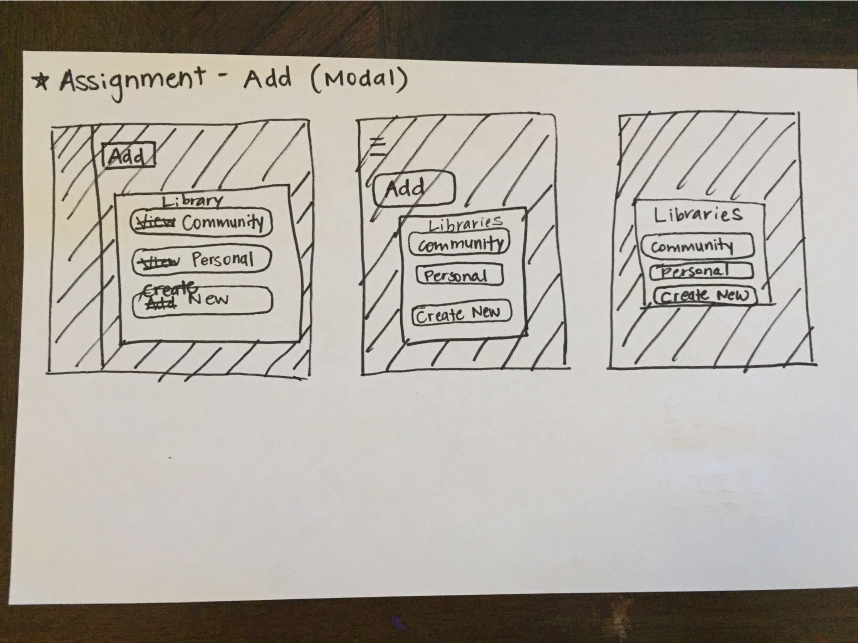 ★ Assignment - Add (Modal)
Add
Library
View Community
View Personal
Create
Add New
Add
Libraries
Community
Personal
Create New
Libraries
Community
Personal
Create New